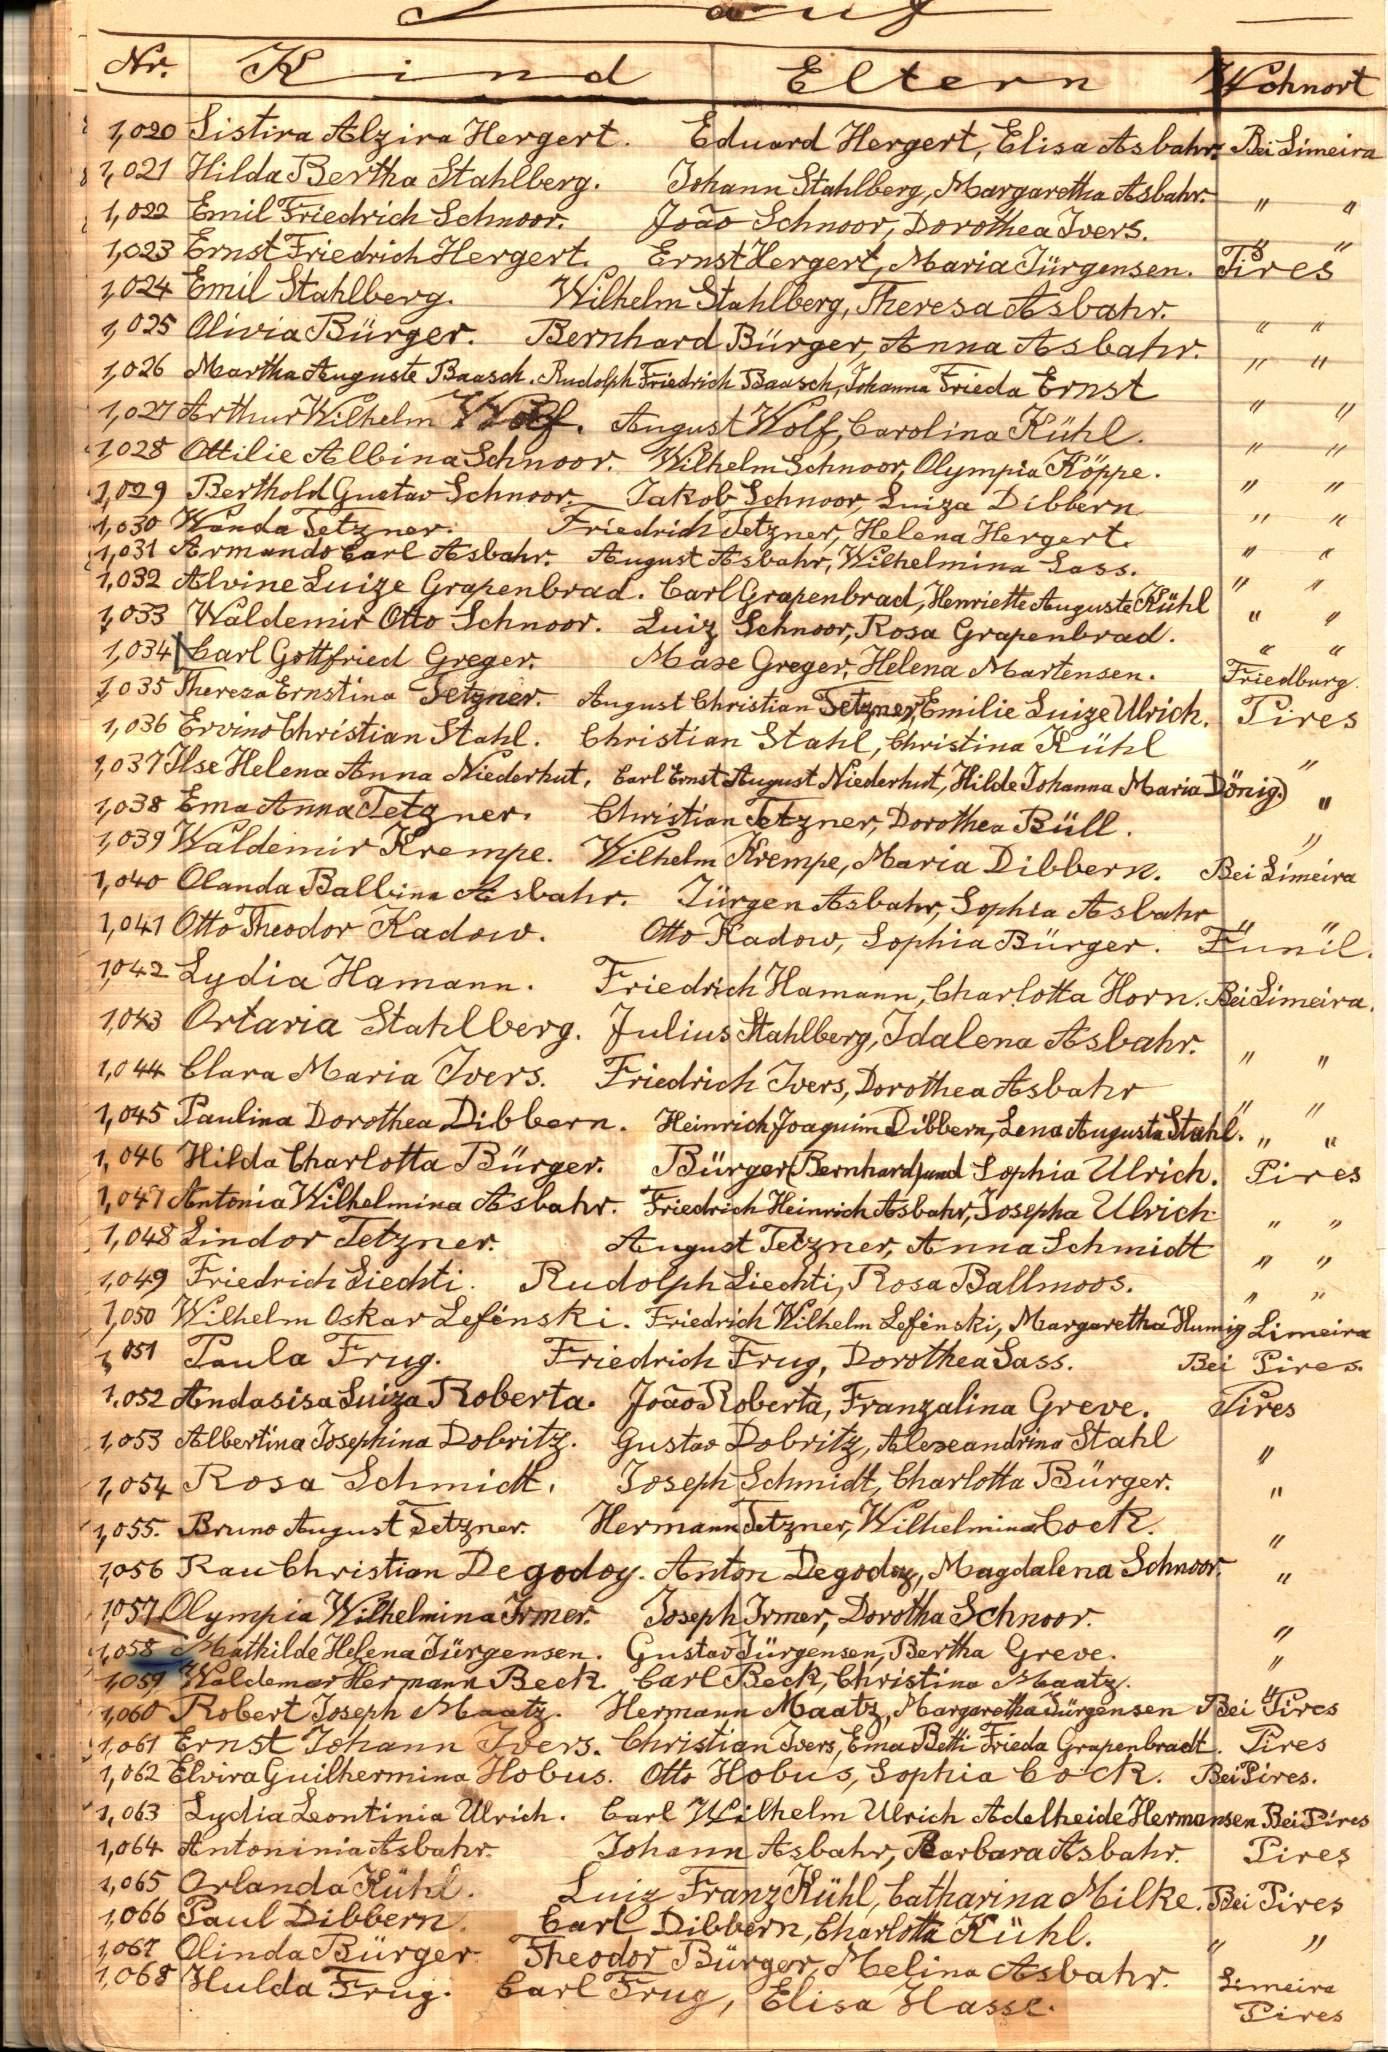 Tauf
Nr. Kind Eltern Wohnort
1,020 Sistira Alzira Hergert. Eduard Hergert, Elisa Asbahr. Bei Limeira
1,021 Hilda Bertha Stahlberg. Johann Stahlberg, Margaretha Asbahr. " "
1,022 Emil Friedrich Schnoor. João Schnoor, Dorothea Ivers. " "
1,023 Ernst Friedrich Hergert. Ernst Hergert, Maria Jürgensen. Pires
1,024 Emil Stahlberg. Wilhelm Stahlberg, Theresa Asbahr. " "
1,025 Olivia Bürger. Bernhard Bürger, Anna Asbahr. " "
1,026 Martha Auguste Baasch. Rudolph Friedrich Baasch, Johanna Frieda Ernst " "
1,027 Arthur Wilhelm Wolf. August Wolf, Carolina Kühl. " "
1,028 Ottilie Albina Schnoor. Wilhelm Schnoor, Olympia Köppe. " "
1,029 Berthold Gustav Schnoor. Jakob Schnoor, Luiza Dibbern " "
1,030 Wanda Tetzner. Friedrich Tetzner, Helena Hergert. " "
1,031 Armando Carl Asbahr. August Asbahr, Wilhelmina Sass. " "
1,032 Alvine Luize Grapenbrad. Carl Grapenbrad, Henriette Auguste Kühl " "
1,033 Waldemir Otto Schnoor. Luiz Schnoor, Rosa Grapenbrad. " "
1,034 Carl Gottfried Greger. Maxe Greger, Helena Martensen. Friedburg.
1,035 Thereza Ernstina Tetzner. August Christian Tetzner, Emilie Luize Ulrich. Pires
1,036 Ervino Christian Stahl. Christian Stahl, Christina Kühl "
1,037 Ilse Helena Anna Niederhut. Carl Ernst August Niederhut, Hilde Johanna Maria Dönig.) "
1,038 Ema Anna Tetzner. Christian Tetzner, Dorothea Büll. "
1,039 Waldemir Krempe. Wilhelm Krempe, Maria Dibbern. Bei Limeira
1,040 Olanda Balbina Asbahr. Jürgen Asbahr, Sophia Asbahr " "
1,041 Otto Theodor Kadow. Otto Kadow, Sophia Bürger. Funil.
1,042 Lydia Hamann. Friedrich Hamann, Charlotta Horn. Bei Limeira.
1,043 Ortaria Stahlberg. Julius Stahlberg, Idalena Asbahr. " "
1,044 Clara Maria Ivers. Friedrich Ivers, Dorothea Asbahr " "
1,045 Paulina Dorothea Dibbern. Heinrich Joaquim Dibbern, Lena Augusta Stahl. " "
1,046 Hilda Charlotta Bürger. Bürger (Bernhard) und Sophia Ulrich. Pires
1,047 Antonia Wilhelmina Asbahr. Friedrich Heinrich Asbahr, Josepha Ulrich " "
1,048 Lindor Tetzner. August Tetzner, Anna Schmidt " "
1,049 Friedrich Liechti. Rudolph Liechti, Rosa Ballmoos. " "
1,050 Wilhelm Oskar Lefénski. Friedrich Wilhelm Lefénski, Margaretha Humig Limeira
1,051 Paula Frug. Friedrich Frug, Dorothea Sass. Bei Pires.
1.052 Andasisa Luiza Roberta. João Roberta, Franzalina Greve. Pires
1,053 Albertina Josephina Dobritz. Gustav Dobritz, Alexeandrina Stahl "
1,054 Rosa Schmidt. Joseph Schmidt, Charlotta Bürger. "
1,055. Bruno August Tetzner. Hermann Tetzner, Wilhelmina Cock. "
1,056 Rau Christian Degodoy. Anton Degodoy, Magdalena Schnoor. "
1,057 Olympia Wilhelmina Irmer. Joseph Irmer, Dorotha Schnoor. "
1,058 Mathilde Helena Jürgensen. Gustav Jürgensen, Bertha Greve. "
1,059 Waldemar Hermann Beck. Carl Beck, Christina Maatz. "
1,060 Robert Joseph Maatz. Hermann Maatz, Margaretha Jürgensen Bei Pires
1,061 Ernst Johann Ivers. Christian Ivers, Ema Betti Frieda Grapenbradt. Pires
1,062 Elvira Guilhermina Hobus. Otto Hobus, Sophia Cock. Bei Pires.
1,063 Lydia Leontinia Ulrich. Carl Wilhelm Ulrich Adelheide Hermansen Bei Pires
1,064 Antoninia Asbahr. Johann Asbahr, Barbara Asbahr. Pires
1,065 Orlanda Kühl. Luiz Franz Kühl, Catharina Milke. Bei Pires
1,066 Paul Dibbern. Carl Dibbern, Charlotta Kühl. " "
1,067 Olinda Bürger Theodor Bürger, Melina Asbahr. Limeira
1,068 Hulda Frug. Carl Frug, Elisa Hasse. Pires